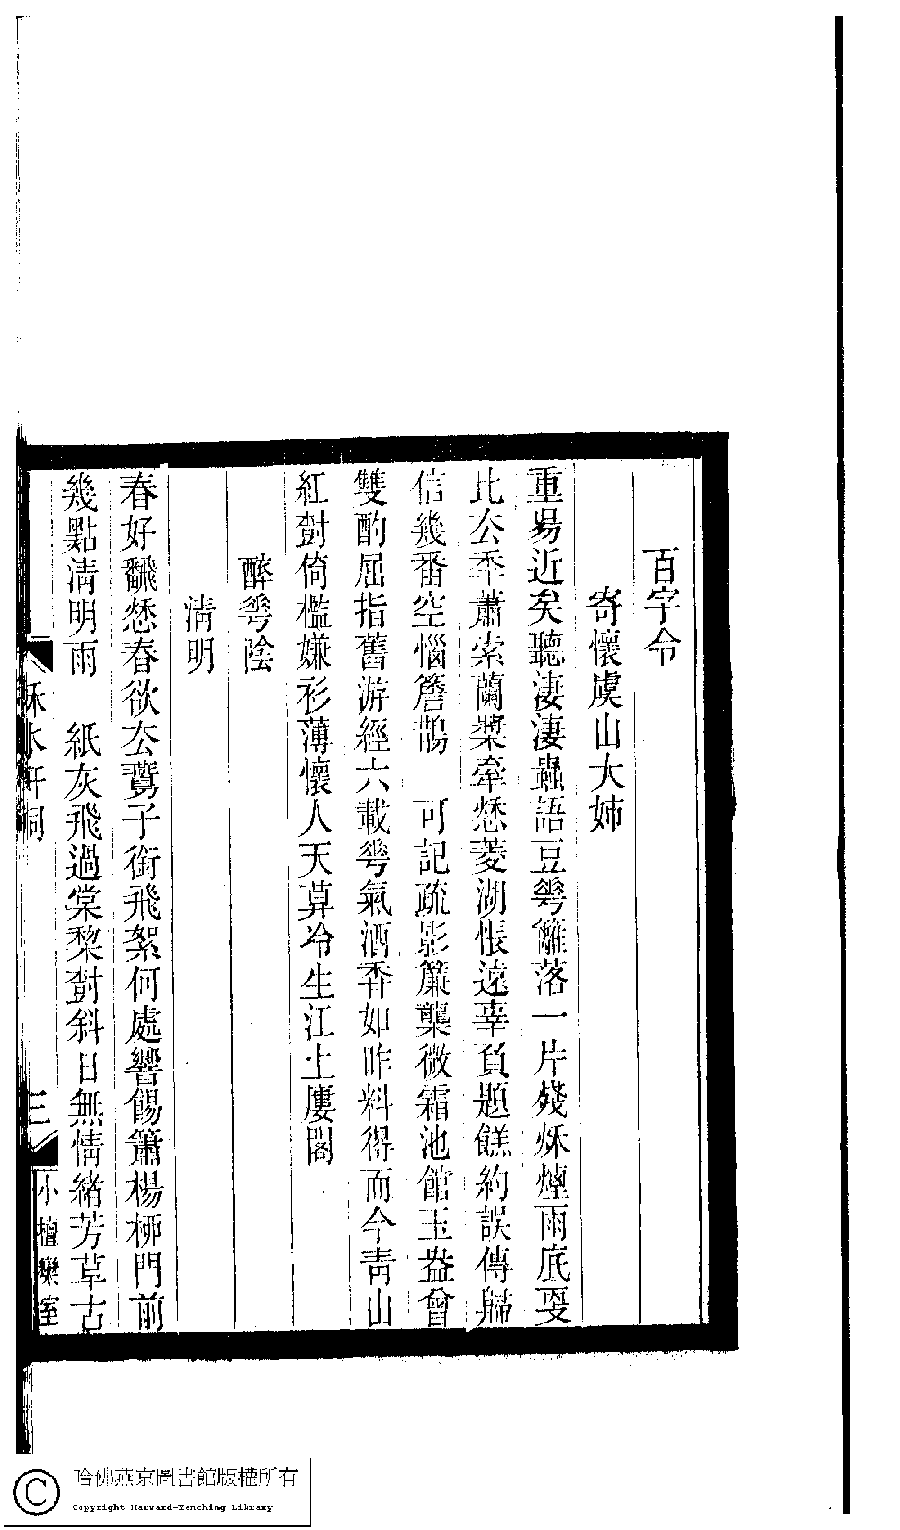 百字令
寄懷虞山大姉
重昜近矣聽淒淒蟲語豆𠌶籬落一片殘秌煙雨底㪅
比厺秊蕭索蘭槳牽愁菱湖悵遠辜負題餻約誤傳歸
信幾番空惱簷鵲　可記疏影簾櫳微霜池館玉盞曾
雙酌屈指舊游經六載𠌶氣酒香如昨料得而今青山
紅對倚檻嫌衫薄懷人天莫冷生江上廔閣
醉𠌶陰
清明
春好飜愁春欲厺鷰子銜飛絮何處響餳簫楊桺門前
幾點清明雨　紙灰飛過棠棃對斜日無情緒芳草古
秌水軒詞　三　小檀欒室
哈佛燕京圖書館版權所有
Copyright Harvard-Yenching Library